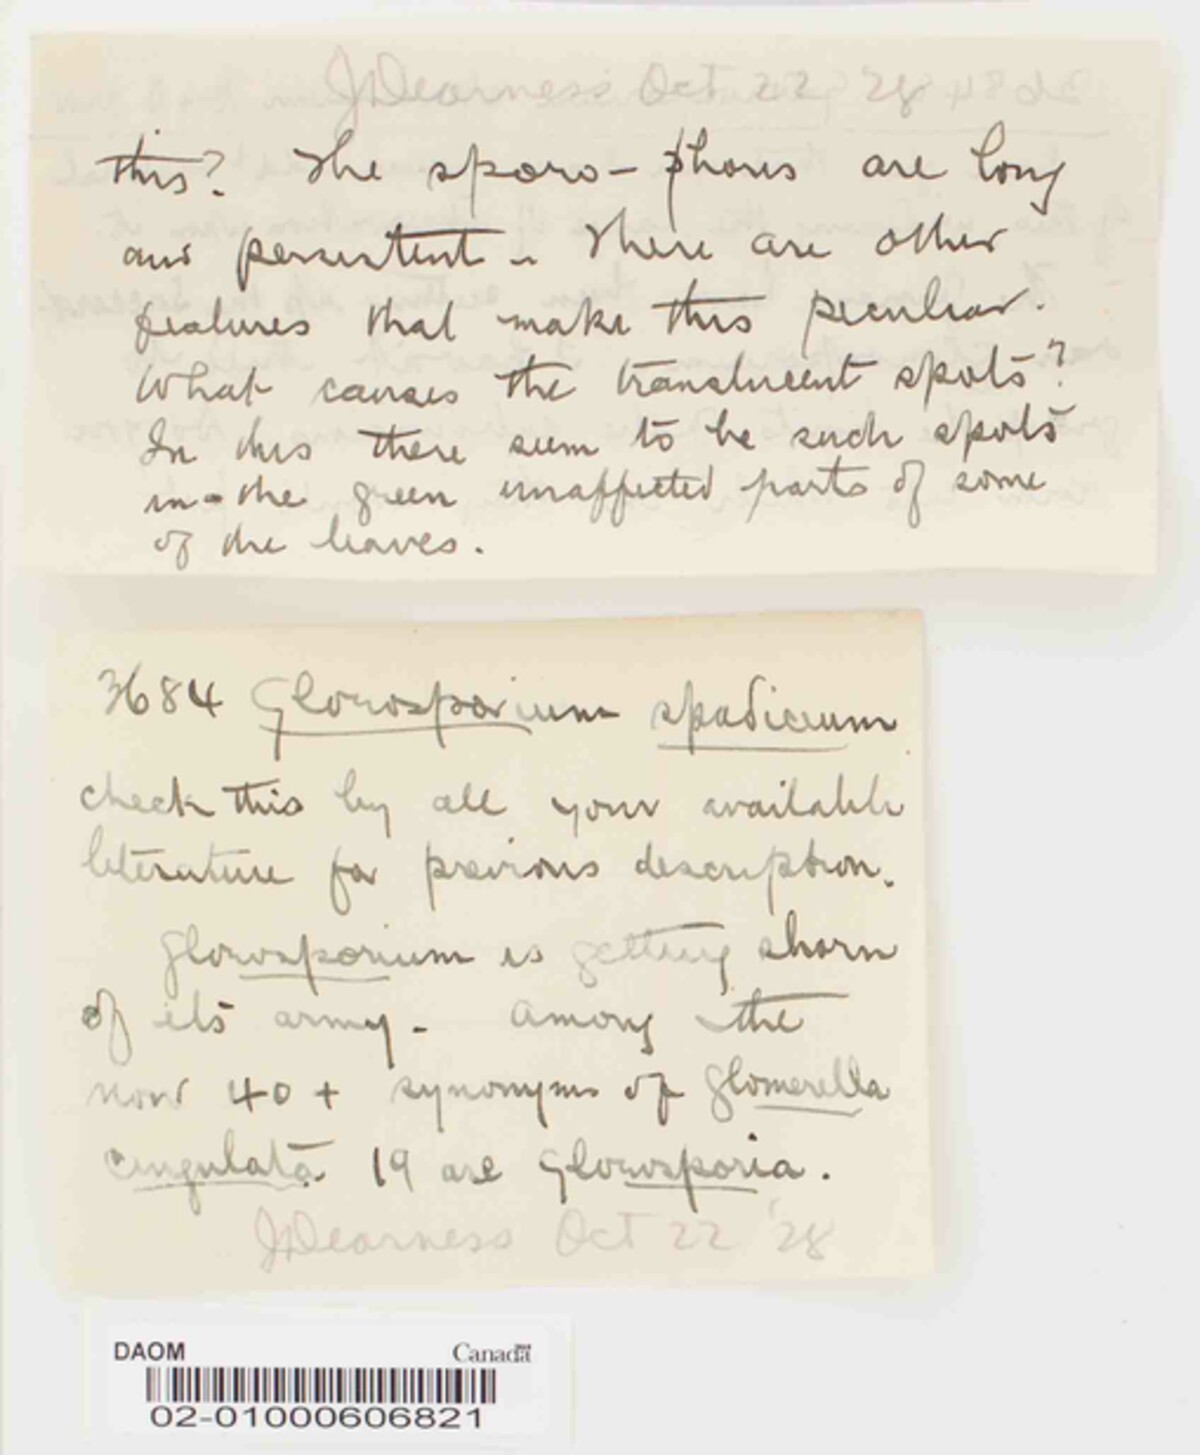 J Dearness Oct 22 '28
this? The sporo-phores are long
and persistent - There are other
features that make this peculiar.
What causes the translucent spots?
In this there seem to be such spots
in the green unaffected parts of some
of the leaves.
3684 Gloeosporium spadiceum
check this by all your available
literature for previous description.
Gloeosporium is getting shorn
of its army - Among the
now 40 + synonyms of Glomerella
cingulata 19 are Gloeosporia.
J Dearness Oct 22 '28
DAOM Canada
02-01000606821